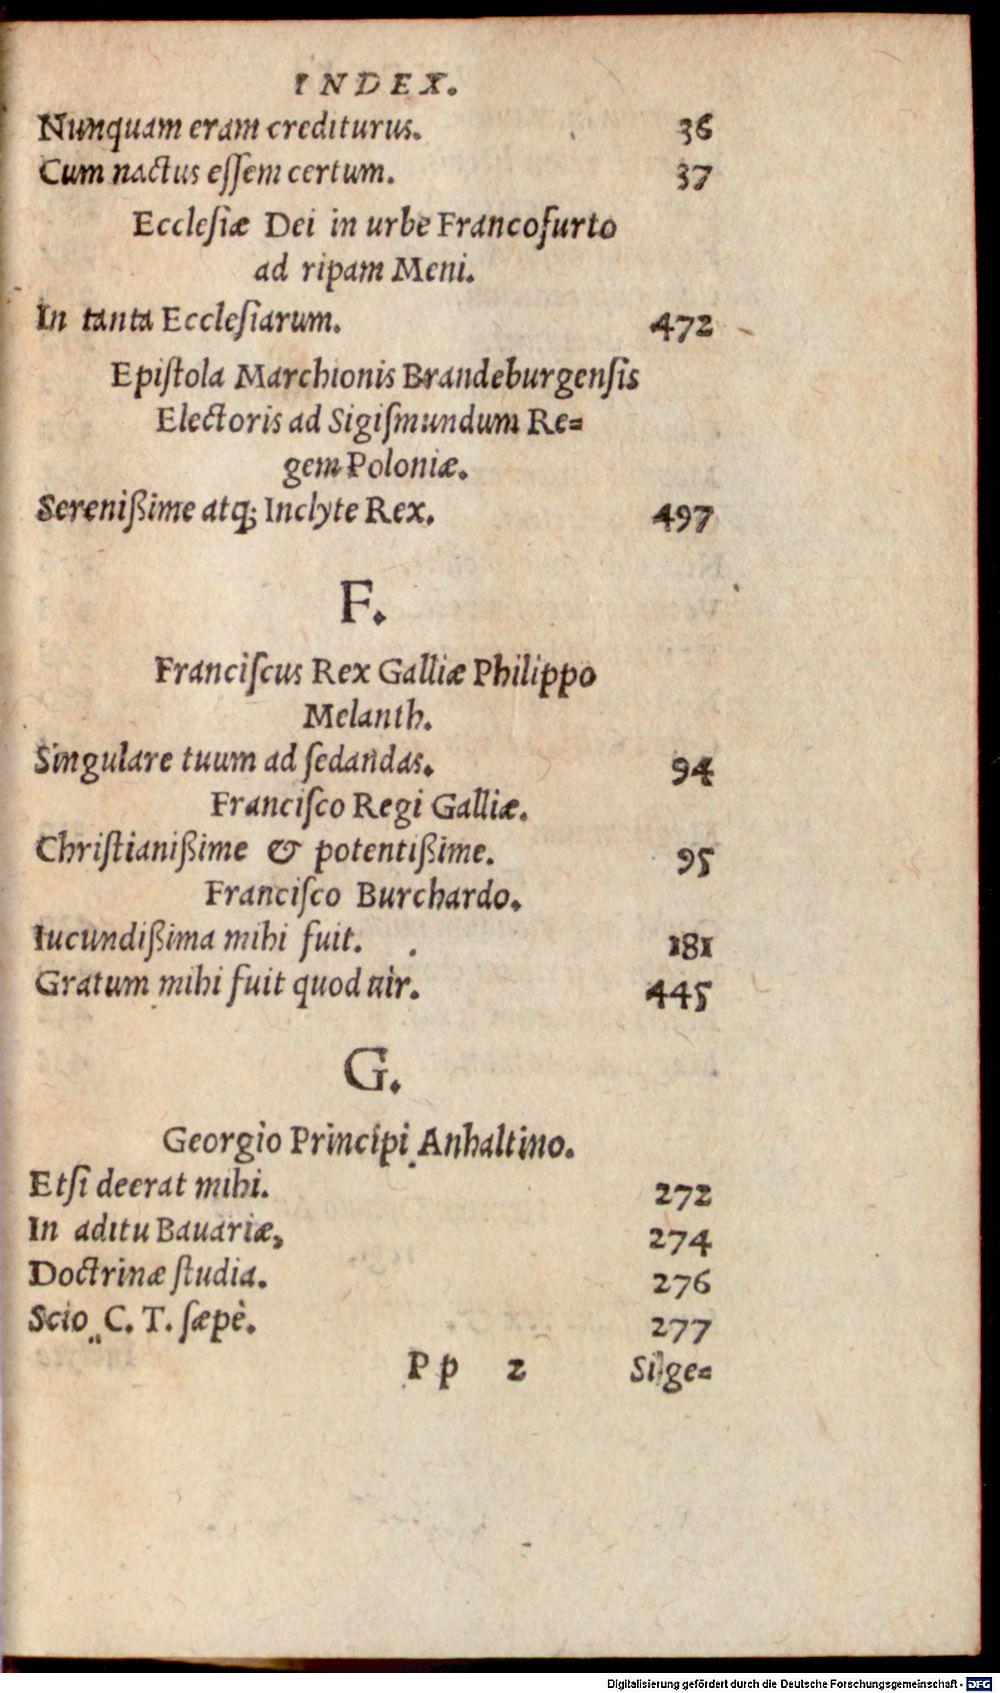 INDEX.
Nunquam eram crediturus. 36
Cum nactus eſſem certum. 37
Eccleſiæ Dei in urbe Francofurto
ad ripam Meni.
In tanta Eccleſiarum. 472
Epiſtola Marchionis Brandeburgenſis
Electoris ad Sigiſmundum Re=
gem Poloniæ.
Serenißime atq; Inclyte Rex. 497
F.
Franciſcus Rex Galliæ Philippo
Melanth.
Singulare tuum ad ſedandas. 94
Franciſco Regi Galliæ.
Chriſtianißime & potentißime. 95
Franciſco Burchardo.
Iucundißima mihi fuit. 181
Gratum mihi fuit quod uir. 445
G.
Georgio Principi Anhaltino.
Etſi deerat mihi. 272
In aditu Bauariæ, 274
Doctrinæ ſtudia. 276
Scio C. T. ſæpè. 277
Pp 2 Si ge=
Digitalisierung gefördert durch die Deutsche Forschungsgemeinschaft - DFG